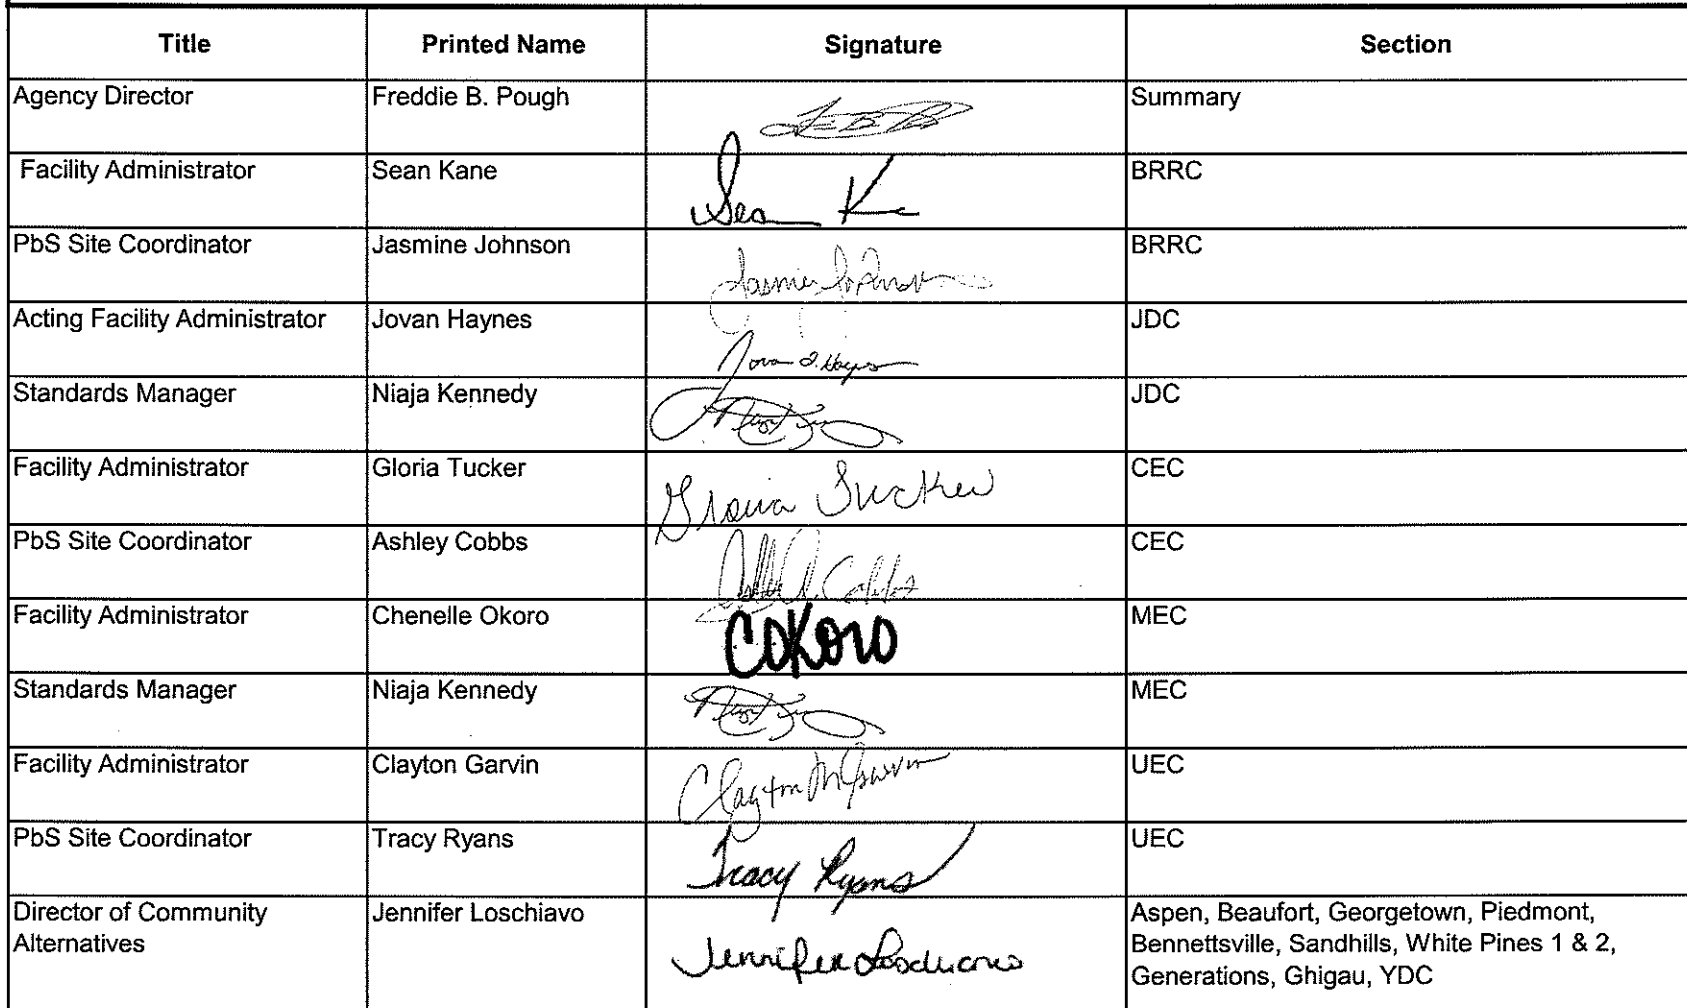 Title Printed Name Signature Section
Agency Director Freddie B. Pough Summary
Facility Administrator Sean Kane Sean K BRRC
PbS Site Coordinator Jasmine Johnson Jasmine Johnson BRRC
Acting Facility Administrator Jovan Haynes Jovan J. Haynes JDC
Standards Manager Niaja Kennedy JDC
Facility Administrator Gloria Tucker Gloria Tucker CEC
PbS Site Coordinator Ashley Cobbs Ashley A. Cobbs CEC
Facility Administrator Chenelle Okoro COKORO MEC
Standards Manager Niaja Kennedy MEC
Facility Administrator Clayton Garvin Clayton M Garvin UEC
PbS Site Coordinator Tracy Ryans Tracy Ryans UEC
Director of Community Jennifer Loschiavo Aspen, Beaufort, Georgetown, Piedmont,
Alternatives Jennifer Loschiavo Bennettsville, Sandhills, White Pines 1 & 2,
Generations, Ghigau, YDC